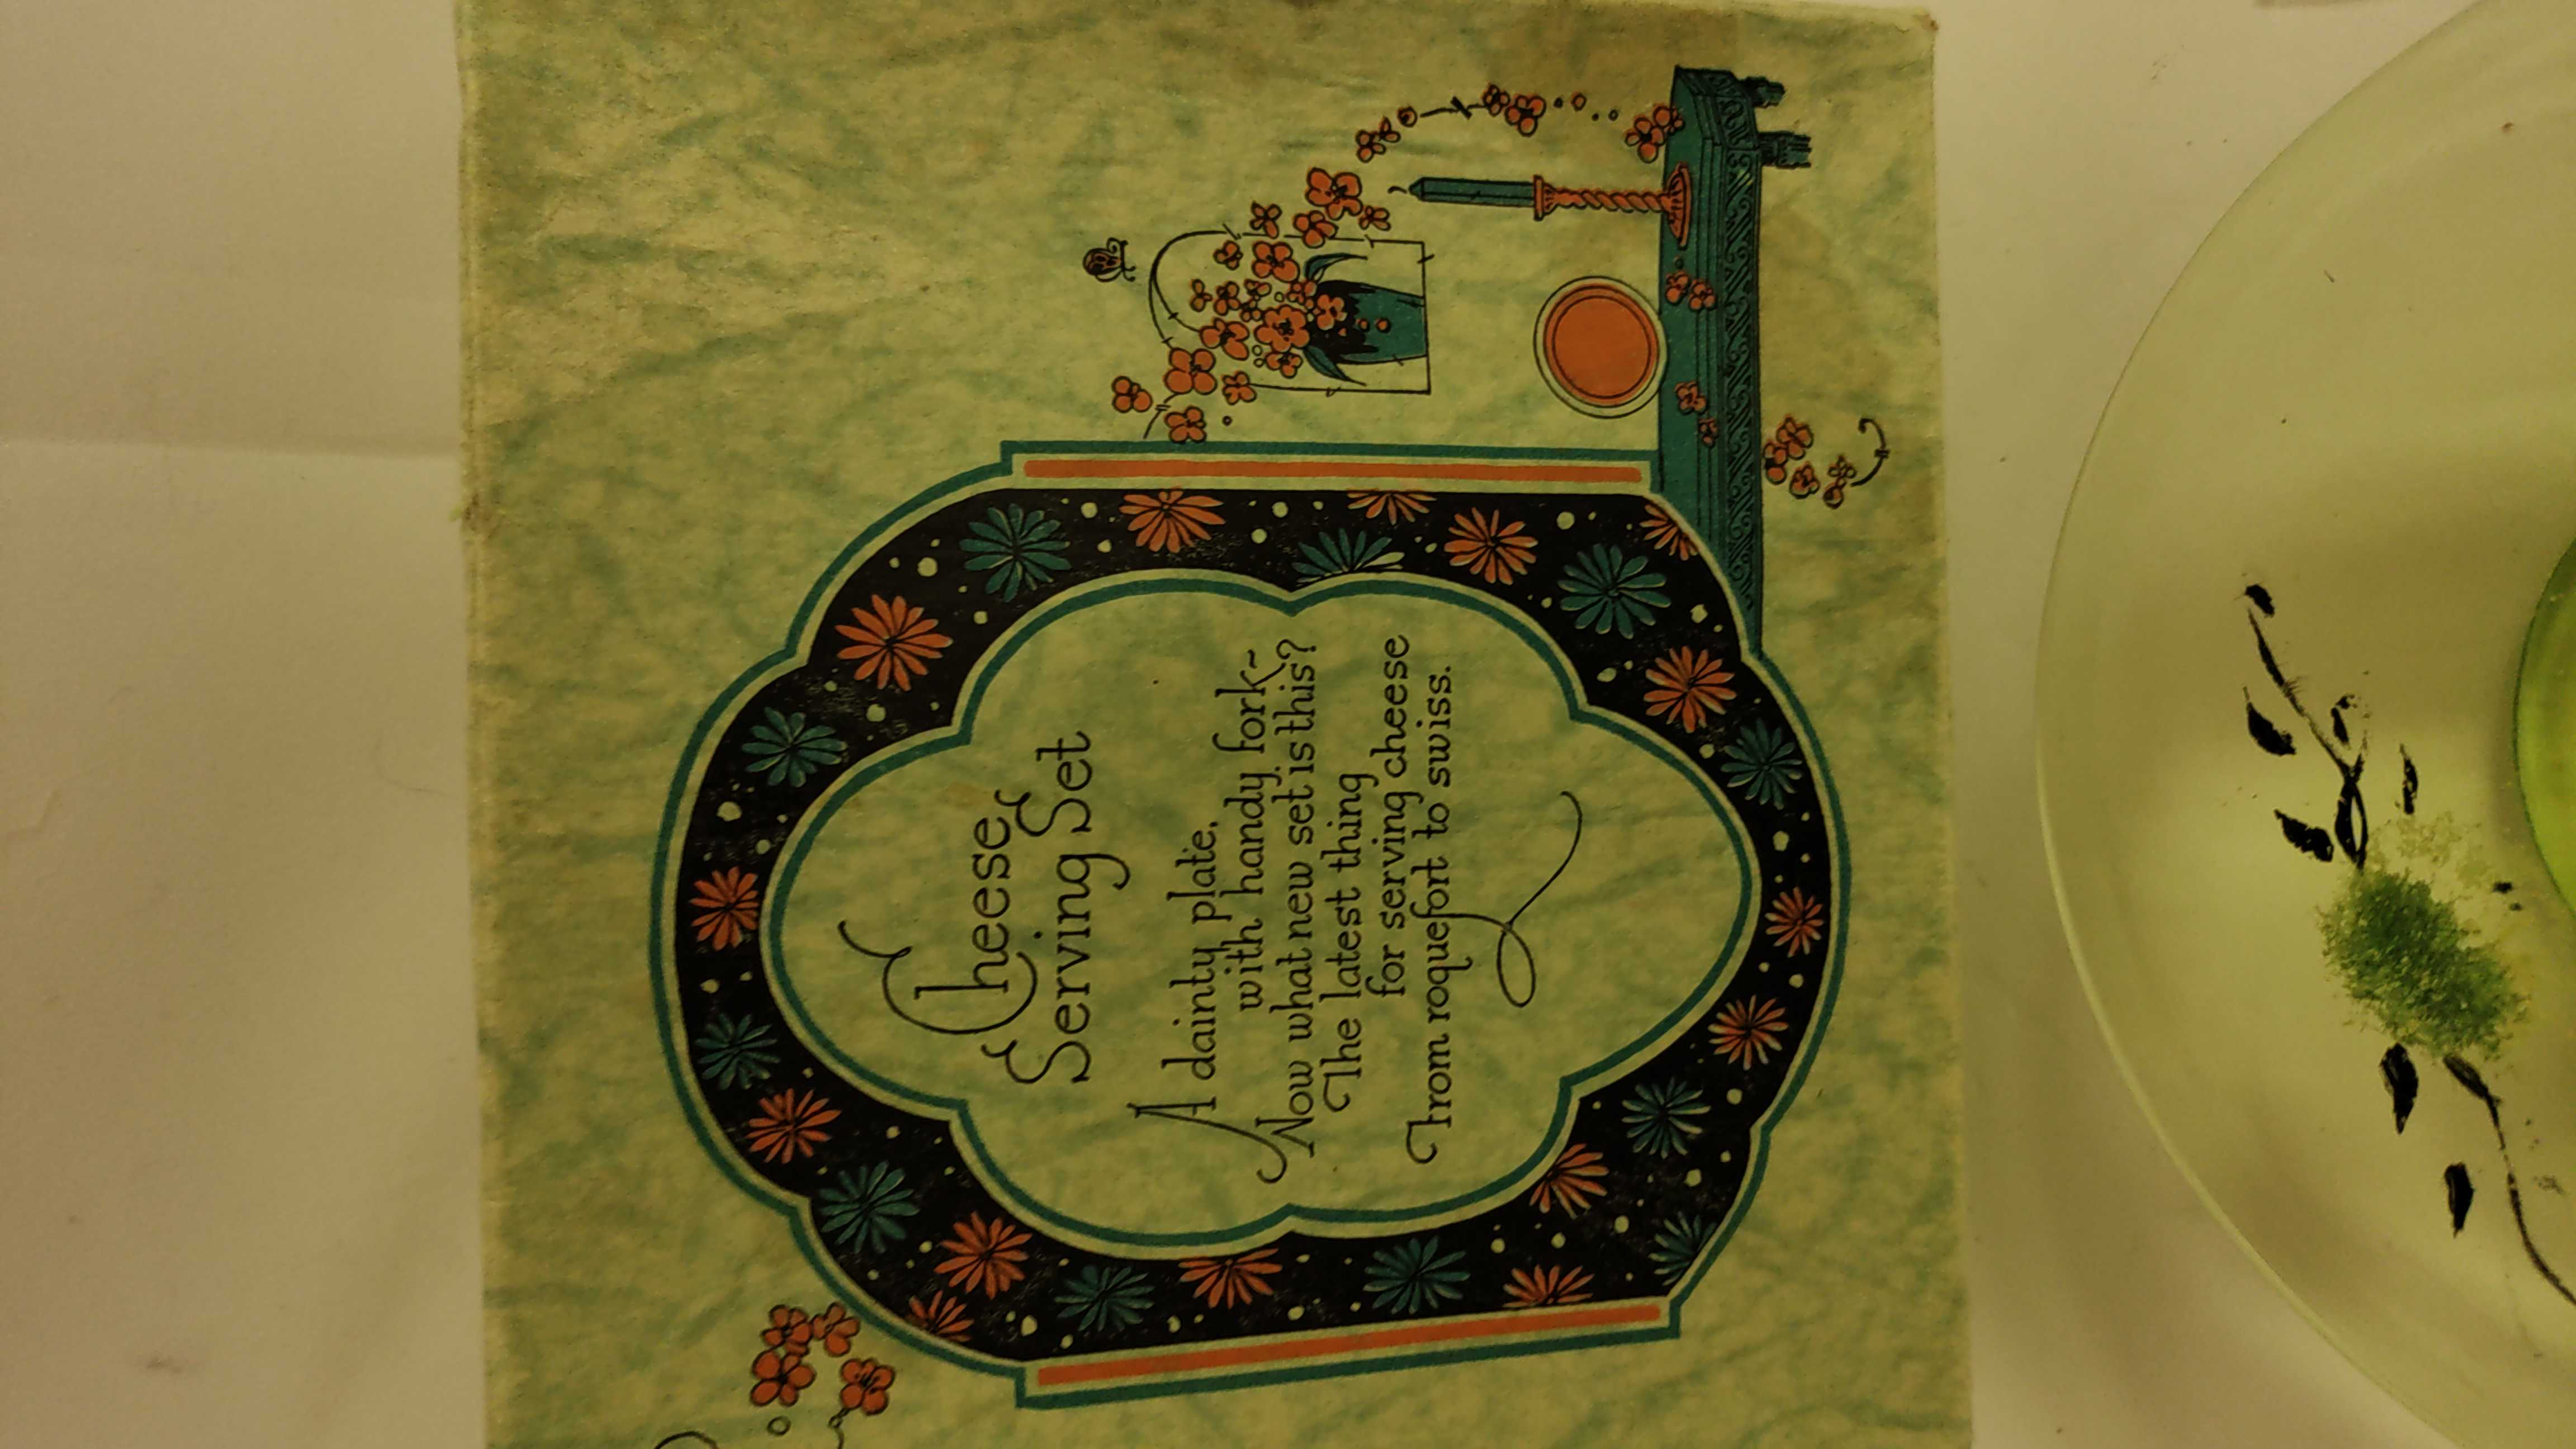 Cheese
Serving Set
A dainty plate,
with handy fork~
Now what new set is this?
The latest thing
for serving cheese
From roquefort to swiss.